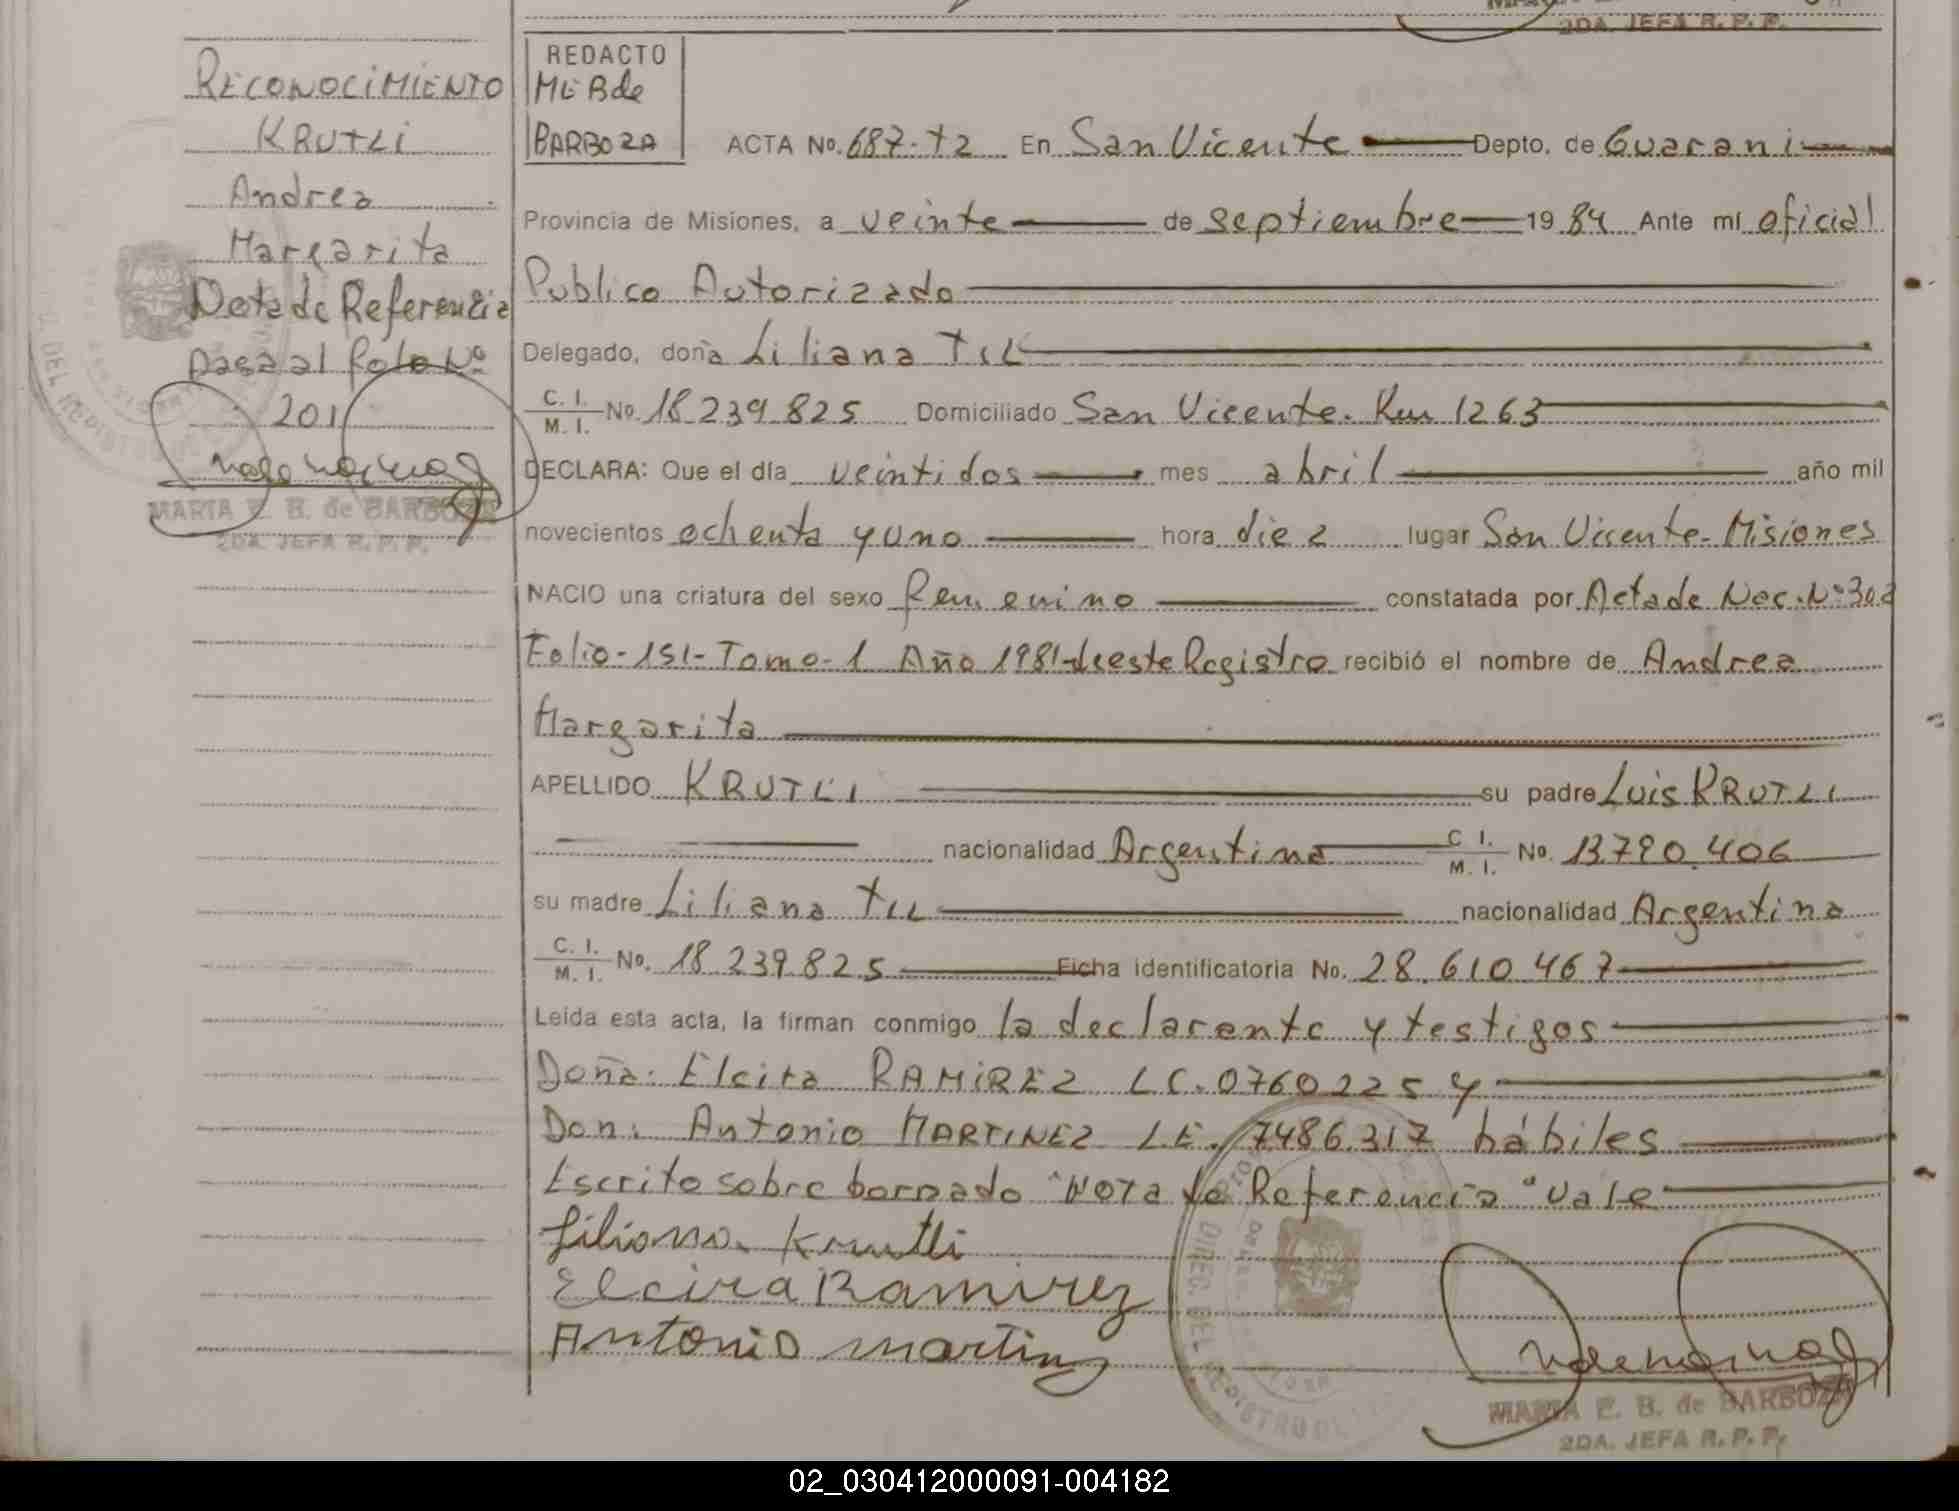 2DA. JEFA R. P. P.
RECONOCIMIENTO
KRUTLI
Andrea
Margarita
Nota de Referencia
pasa al folo Nº
201
MARIA E. B. de BARBOZA
2DA. JEFA R. P. P.
REDACTO
MEB de
BARBOZA
ACTA No. 687-T2 En San Vicente Depto. de Guarani
Provincia de Misiones, a veinte de septiembre 19 84 Ante mí oficial
Publico Autorizado
Delegado, doña Liliana TIL
C. I. / M. I. No. 18 239 825 Domiciliado San Vicente. Km 1263
DECLARA: Que el día veintidos mes abril año mil
novecientos ochenta y uno hora diez lugar San Vicente - Misiones
NACIO una criatura del sexo femenino constatada por Acta de Nac. Nº 302
Folio - 151 - Tomo - 1 Año 1981 - de este Registro recibió el nombre de Andrea
Margarita
APELLIDO KRUTLI su padre Luis KRUTLI
nacionalidad Argentina C. I. / M. I. No. 13.790.406
su madre Liliana TIL nacionalidad Argentina
C. I. / M. I. No. 18 239.825 Ficha identificatoria No. 28.610.467
Leída esta acta, la firman conmigo la declarante y testigos
Doña: Elcira RAMIREZ LC. 0760225 y
Don: Antonio MARTINEZ LE. 7486.317 hábiles
Escrito sobre borrado "Nota de Referencia" Vale
Liliana Krutli
Elcira Ramirez
Antonio Martinez
DIREC. DEL REGISTRO DE
MARIA E. B. de BARBOZA
2DA. JEFA R. P. P.
02_030412000091-004182